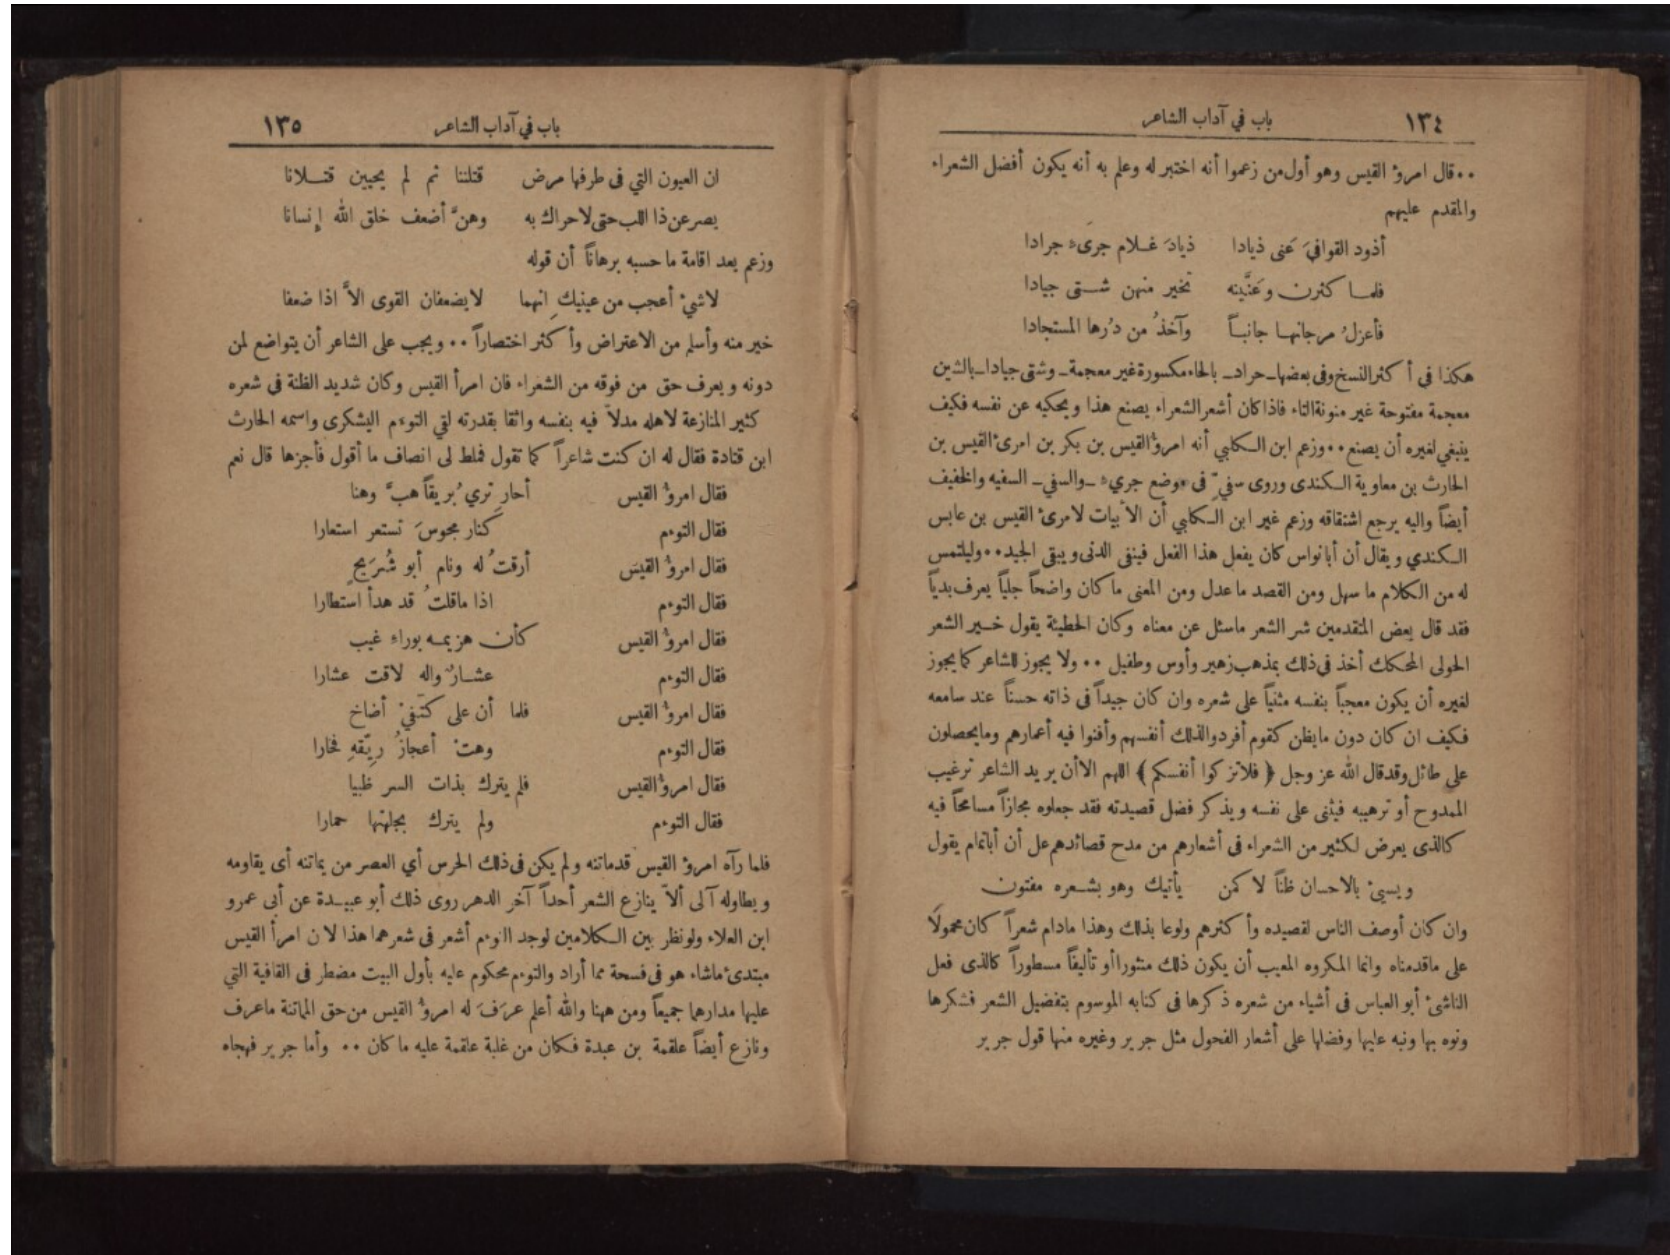 ١٣٤ باب في آداب الشاعر
٠٠ قال امرؤ القيس وهو أول من زعموا أنه اختبر له وعلم به أنه يكون أفضل الشعراء
والمقدم عليهم
أذود القوافيَ عَنى ذيادا ذيادَ غلام جرَىء جرادا
فلما كثرن وعَنَّينه تخير منهن شتى جيادا
فأعزلُ مرجانها جانباً وآخذُ من دُرها المستجادا
هكذا فى أكثر النسخ وفى بعضها ـ حراد ـ بالحاء مكسورة غير معجمة ـ وشتى جيادا ـ بالشين
معجمة مفتوحة غير منونة التاء فاذا كان أشعر الشعراء يصنع هذا ويحكيه عن نفسه فكيف
ينبغي لغيره أن يصنع ٠٠ وزعم ابن الكلبي أنه امرؤ القيس بن بكر بن امرئ القيس بن
الحارث بن معاوية الكندى وروى سفيّ فى موضع جريء ـ والسفي ـ السفيه والخفيف
أيضاً واليه يرجع اشتقاقه وزعم غير ابن الكلبي أن الأبيات لامرئ القيس بن عابس
الكندي ويقال أن أبا نواس كان يفعل هذا الفعل فينفى الدنى ويبقى الجيد ٠٠ وليلتمس
له من الكلام ما سهل ومن القصد ما عدل ومن المعنى ما كان واضحاً جلياً يعرف بدياً
فقد قال بعض المتقدمين شر الشعر ماسئل عن معناه وكان الحطيئة يقول خير الشعر
الحولى المحكك أخذ فى ذلك بمذهب زهير وأوس وطفيل ٠٠ ولا يجوز للشاعر كما يجوز
لغيره أن يكون معجباً بنفسه مثنياً على شعره وان كان جيداً فى ذاته حسناً عند سامعه
فكيف ان كان دون مايظن كقوم أفردوا لذلك أنفسهم وأفنوا فيه أعمارهم ومايحصلون
على طائل وقد قال الله عز وجل ﴿ فلا تزكوا أنفسكم ﴾ اللهم الا أن يريد الشاعر ترغيب
الممدوح أو ترهيبه فيثنى على نفسه ويذكر فضل قصيدته فقد جعلوه مجازاً مسامحاً فيه
كالذى يعرض لكثير من الشعراء فى أشعارهم من مدح قصائدهم على أن أبا تمام يقول
ويسيئ بالاحسان ظناً لا كمن يأتيك وهو بشعره مفتون
وان كان أوصف الناس لقصيده وأكثرهم ولوعا بذلك وهذا مادام شعراً كان محمولًا
على ماقدمناه وانما المكروه المعيب أن يكون ذلك منثورا أو تأليفاً مسطوراً كالذى فعل
الناشئ أبو العباس فى أشياء من شعره ذكرها فى كتابه الموسوم بتفضيل الشعر فشكرها
ونوه بها ونبه عليها وفضلها على أشعار الفحول مثل جرير وغيره منها قول جرير
باب في آداب الشاعر ١٣٥
ان العيون التي فى طرفها مرض قتلننا ثم لم يحيين قتلانا
يصرعن ذا اللب حتى لاحراك به وهنَّ أضعف خلق الله إنسانا
وزعم بعد اقامة ما حسبه برهاناً أن قوله
لاشئ أعجب من عينيك انهما لايضعفان القوى الاَّ اذا ضعفا
خير منه وأسلم من الاعتراض وأكثر اختصاراً ٠٠ ويجب على الشاعر أن يتواضع لمن
دونه ويعرف حق من فوقه من الشعراء فان امرأ القيس وكان شديد الظنة فى شعره
كثير المنازعة لاهله مدلاًّ فيه بنفسه واثقا بقدرته لقي التوءم اليشكرى واسمه الحارث
ابن قتادة فقال له ان كنت شاعراً كما تقول فملط لى انصاف ما أقول فأجزها قال نعم
فقال امرؤ القيس أحارِ تري بُريقاً هبَّ وهنا
فقال التوءم كنار مجوسَ تستعر استعارا
فقال امرؤ القيس أرقتُ له ونام أبو شُرَيحٍ
فقال التوءم اذا ماقلتُ قد هدأ استطارا
فقال امرؤ القيس كأن هزيمه بوراء غيب
فقال التوءم عشارٌ واله لاقت عشارا
فقال امرؤ القيس فلما أن على كتفيْ أضاخ
فقال التوءم وهتْ أعجازُ ريّقهِ فحارا
فقال امرؤ القيس فلم يترك بذات السر ظبيا
فقال التوءم ولم يترك بجلهتها حمارا
فلما رآه امرؤ القيس قدماتنه ولم يكن فى ذلك الحرس أي العصر من يماتنه أى يقاومه
ويطاوله آلى ألاّ ينازع الشعر أحداً آخر الدهر روى ذلك أبو عبيدة عن أبى عمرو
ابن العلاء ولو نظر بين الكلامين لوجد التوءم أشعر فى شعرهما هذا لان امرأ القيس
مبتدئ ماشاء هو فى فسحة مما أراد والتوءم محكوم عليه بأول البيت مضطر فى القافية التي
عليها مدارهما جميعاً ومن ههنا والله أعلم عرَفَ له امرؤ القيس من حق المماتنة ماعرف
ونازع أيضاً علقمة بن عبدة فكان من غلبة علقمة عليه ما كان ٠٠ وأما جرير فهجاه